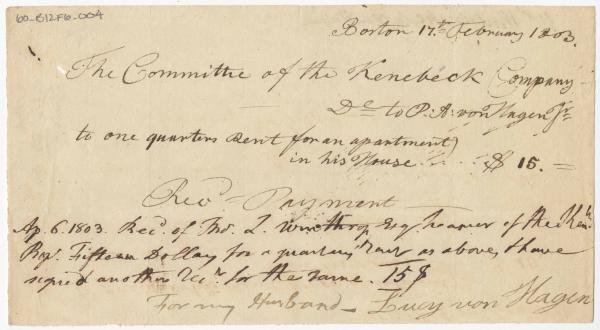 60-B12F6-004
Boston 17th February 1803.
The Committe of the Kenebeck Company
Dr to P. A. von Hagen Jr
to one quarters Rent (for an apartment)
in his House . . . $ 15. =
Recd Payment
Ap. 6. 1803. Recd. of Tho. L. Winthrop Esq. treasurer of the Ken.
Fifteen Dollars for a quarters Rent as above, I have
signed another Rect. for the same. 15$
For my Husband - Lucy von Hagen